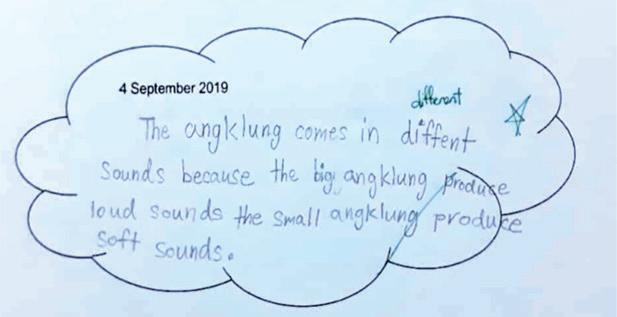 4 September 2019
different
The angklung comes in diffent
sounds because the big angklung produce
loud sounds the small angklung produce
soft sounds.